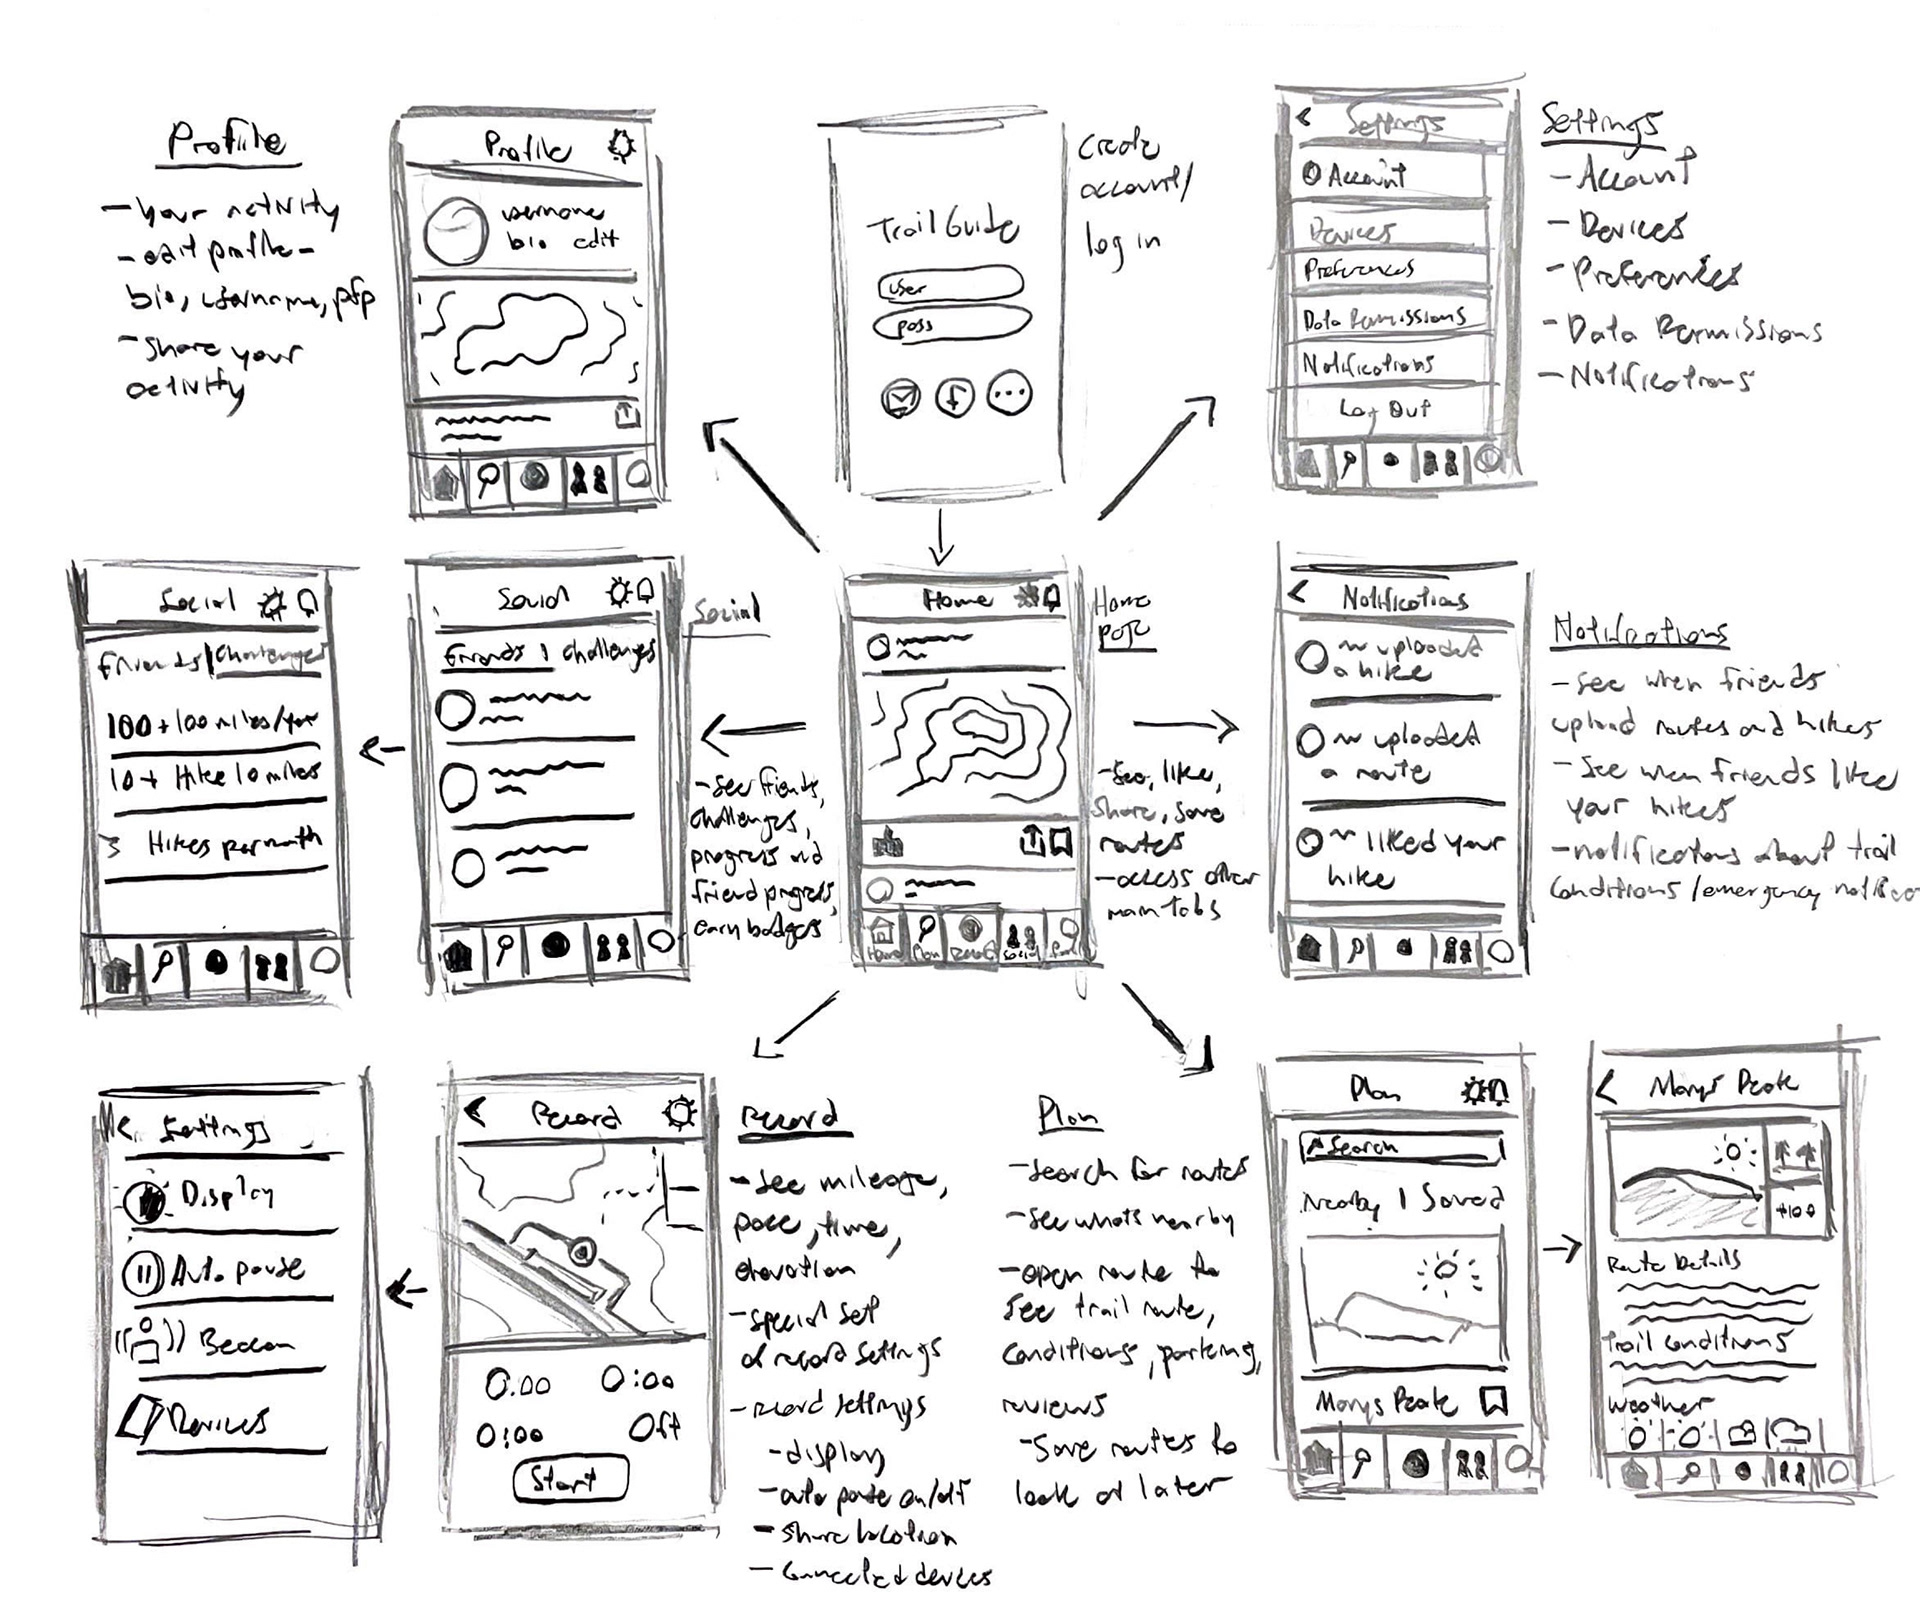 Profile
- your activity
- edit profile -
bio, username, pfp
- share your
activity
Profile
username
bio edit
Trail Guide
user
pass
f
create
account/
log in
< Settings
Account
Devices
Preferences
Data Permissions
Notifications
Log Out
Settings
- Account
- Devices
- Preferences
- Data Permissions
- Notifications
Social
Friends | Challenges
100 + 100 miles/year
10 + Hike 10 miles
3 Hikes per month
Social
Friends | Challenges
Social
- see friends,
challenges,
progress and
friend progress,
earn badges
Home
Home Plan Record Social
Home
page
- See, like,
share, save
routes
- access other
main tabs
< Notifications
~ uploaded
a hike
~ uploaded
a route
~ liked your
hike
Notifications
- see when friends
upload routes and hikes
- See when friends like
your hikes
- notifications about trail
conditions/emergency
< Settings
Display
Auto pause
Beacon
Devices
< Record
0.00 0:00
0:00 0ft
Start
Record
- See mileage,
pace, time,
elevation
- special set
of record settings
- record settings
- display
- auto pause on/off
- share location
- connected devices
Plan
- search for routes
- see whats nearby
- open route to
see trail route,
conditions, parking,
reviews
- Save routes to
look at later
Plan
Search
Nearby | Saved
Marys Peak
< Marys Peak
+100
Route Details
Trail Conditions
Weather